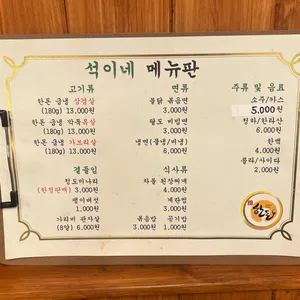 석이네 메뉴판
고기류
한돈 급냉 삼겹살
(180g) 13,000원
한돈 급냉 목살
(180g) 13,000원
한돈 급냉 가브리살
(180g) 13,000원
곁들임
청도미나리
(한정판매) 3,000원
팽이버섯
1,000원
가리비 관자살
(8알) 6,000원
면류
불닭 볶음면
3,000원
팔도 비빔면
3,000원
냉면(물냉/비냉)
6,000원
식사류
차돌 된장찌개
4,000원
계란찜
3,000원
볶음밥 공기밥
3,000원 1,000원
주류 및 음료
소주/카스
5,000원
청하/한라산
6,000원
한맥
4,000원
콜라/사이다
2,000원
한돈